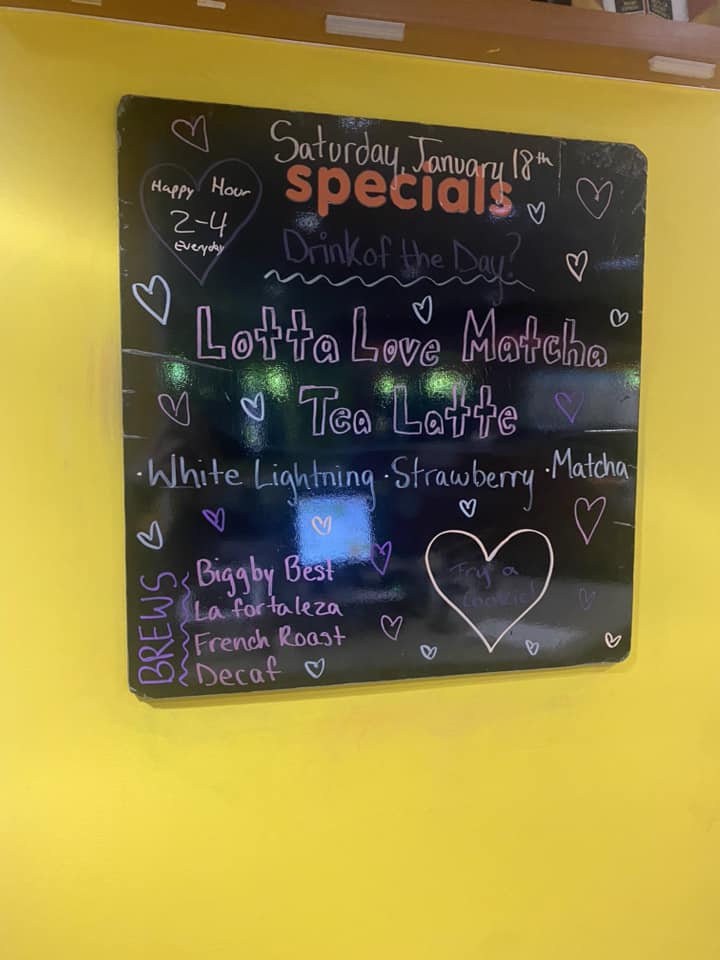 Saturday, January 18th
specials
Happy Hour
2-4
Everyday
Drink of the Day?
Lotta Love Matcha
Tea Latte
·White Lightning ·Strawberry ·Matcha
BREWS
Biggby Best
La fortaleza
French Roast
Decaf
Try a
cookie!